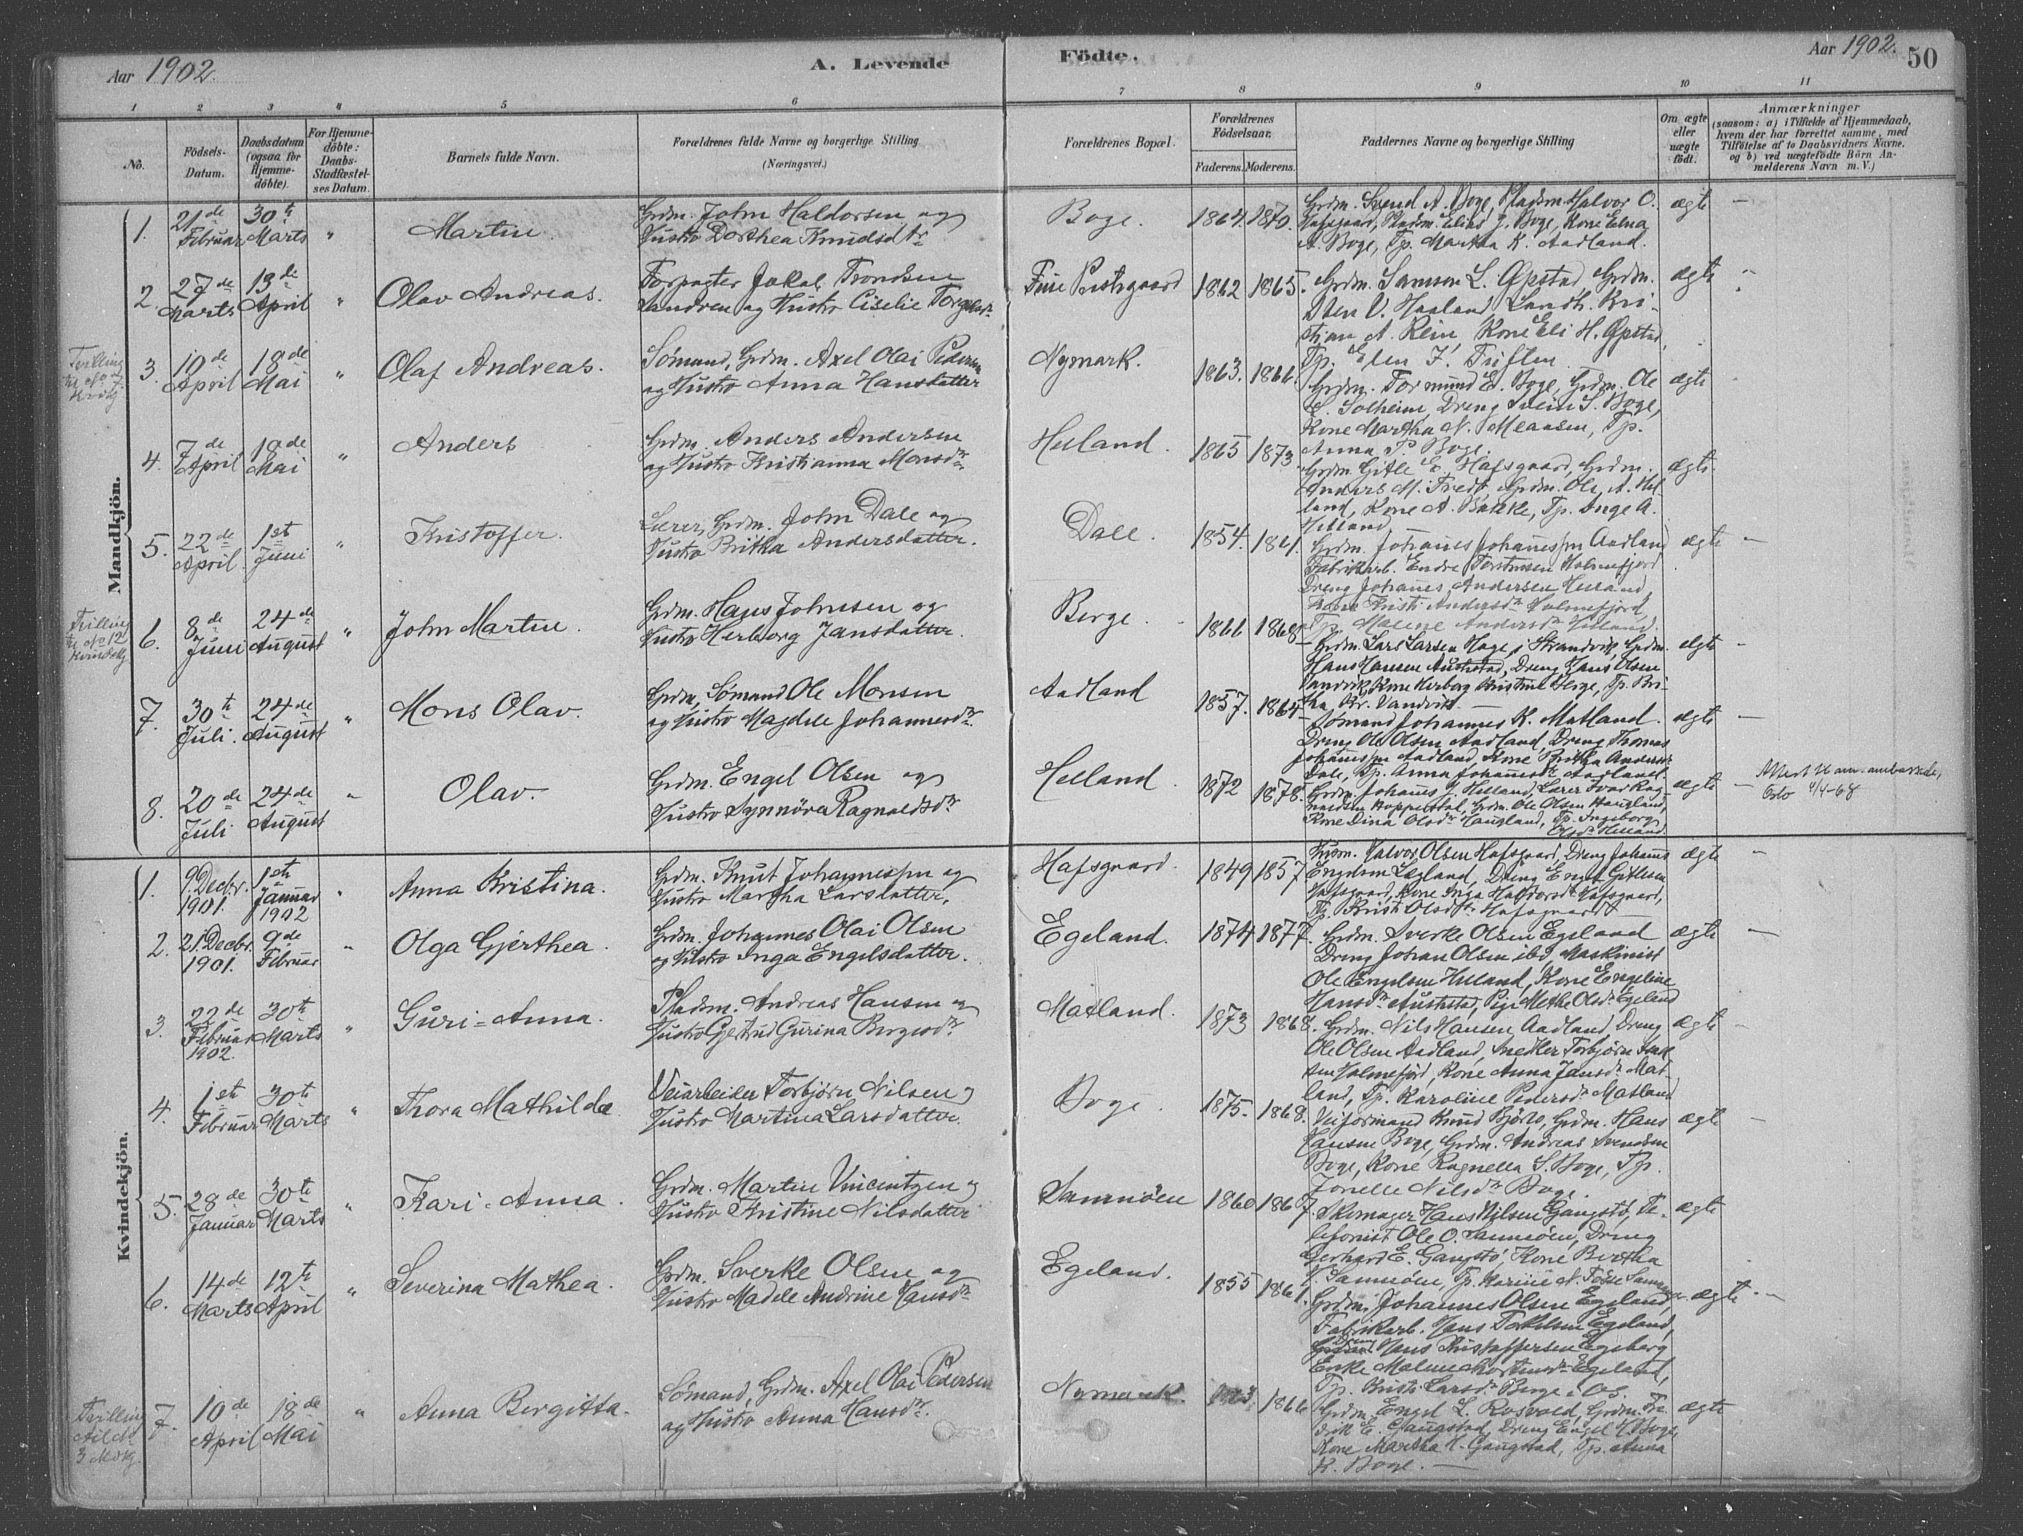 Aar 1902.
A. Levende
Födte.
Aar 1902.
50
1 2 3 4 5 6 7 8 9 10 11
No.
Födsels-Datum.
Daabsdatum (ogsaa for Hjemme-döbte).
For Hjemme-döbte: Daabs-Stadfæstel-ses Datum.
Barnets fulde Navn.
Forældrenes fulde Navne og borgerlige Stilling (Næringsvei.)
Forældrenes Bopæl.
Forældrenes Födselsaar.
Faderens. Moderens.
Faddernes Navne og borgerlige Stilling
Om ægte eller uægte födt.
Anmærkninger
(saasom: a) i Tilfælde af Hjemmedaab,
hvem der har forrettet samme, med
Tilföielse af to Daabsvidners Navne,
og b) ved uægtefödte Börn An-
melderens Navn m. V.)
Mandkjön.
1. 21de Februar 30te Marts " Martin. Grdm. John Haldorsen og Hustro Dorthea Knudsdtr Boge. 1864. 1870. ægte —
Grdm. Svend A. Boge, Pladsm. Halvor O.
Hafsgaard, Pladsm. Elias J. Boge, Kone Elna
A. Boge, Tp. Martha K. Aadland.
2. 27de Marts 13de April " Olav Andreas. Forpagter Jakob Trondsen og Hustro Fuse Prestegaard 1862 1865. ægte
Grdm. Samson L. Øpstad, Grdm.
Sten V. Haaland, Landh. Kri-
stian A. Rein, Kone Eli H. Øpstad,
Tp. Elen J.
Tvilling til No 7 Kvkj
3. 10de April 18de Mai " Olaf Andreas. Sømand, Grdm. Axel Olai Pedersen og Hustro Anna Hansdatter Nymark. 1863. 1866. ægte
Grdm. Tormund E. Boge, Grdm. Ole
E. Solheim, Dreng Svein S. Boge,
Kone Martha N. Tp.
Anna P. Boge.
4. 7de April 18de Mai " Anders Grdm. Anders Andersen og Hustro Kristianna Monsdtr Helland. 1865 1873 ægte.
Grdm. Gitle E. Hafsgaard, Grdm.
Anders M. Grdm. Ole A. Hel-
land, Kone A. Bakke, Tp. Inge A.
Helland
5. 22de April 1st Juni " Kristoffer. Lærer, Grdm. John Dale og Hustro Britha Andersdatter. Dale. 1854. 1861. ægte —
Grdm. Johannes Johannessen Aadland
Fabrikarb. Endre Torstensen Holmefjord
Dreng Johannes Andersen Helland
Kone Kristi Andersdr Holmefjord,
Tp. Malene Andersdr Helland.
Tvilling til No 12 Kvindekj
6. 8de Juni 24de August " John Martin. Grdm. Hans Johnsen og Hustro Herborg Jansdatter. Berge. 1866 1868 ægte —
Grdm. Lars Larsen Hage i Strandvik, Grdm.
Hans Hansen Austestad, Dreng Hans Olsen
Vandvik, Kone Herborg Kristine Berge, Tp. Bri-
tha Kr. Vandvik.
7. 30te Juli. 24de August " Mons Olav. Grdm, Sømand Ole Monsen og Hustro Magdele Johannesdr. Aadland 1857. 1864 ægte —
Sømand Johannes K. Matland.
Dreng Ole Olsen Aadland, Dreng Thomas
Johannessen Aadland, Kone Britha Andersdr
Dale, Tp. Anna Johannesdr Aadland.
8. 20de Juli 24de August " Olav. Grdm. Engel Olsen og Hustro Synnöva Ragnaldsdr Helland 1872 1878. ægte —
Grdm. Johannes J. Helland, Lærer Ivar Rag-
naldsen Hopperstad, Grdm. Ole Olsen Haugland,
Kone Dina Olsdr Haugland, Tp. Ingeborg
Olsdr Helland.
Attest til am. ambassade,
Oslo 4/4-68
Kvindekjön.
1. 9. Decbr. 1901. 1ste Januar 1902 " Anna Kristina. Grdm. Knut Johannessen og Hustro Martha Larsdatter. Hafsgaard. 1849 1857 ægte —
Husm. Halvor Olsen Hafsgaard, Dreng Johannes
Engelsen Lægland, Dreng Engel Gitlesen
Hafsgaard, Kone Inga Halvorsdr Hafsgaard,
Tp. Kristi Olsdtr Hafsgaard —
2. 21. Decbr. 1901. 9de Februar " Olga Gjerthea. Grdm. Johannes Olai Olsen og Hustro Inga Engelsdatter. Egeland. 1874 1877. ægte —
Grdm. Sverke Olsen Egeland
Dreng Johan Olsen ibd, Maskinist
Ole Engelsen Helland, Kone Engeline
Hansdr Austestad, Pige Methe Olsdr Egeland
3. 22de Februar 1902. 30te Marts " Guri-Anna. Pladsm. Andreas Hansen og Hustro Gjertrud Gurina Birgesdr Matland. 1873 1868. ægte —
Grdm. Nils Hansen Aadland, Dreng
Ole Olsen Aadland, Snedker Torbjørn
Holmefjord, Kone Anna Jansdr Mat-
land, Tp. Karoline Pedersdr Matland
4. 1ste Februar 30te Marts " Thora Mathilde Veiarbeider Torbjørn Nilsen og Hustro Martina Larsdatter. Boge. 1875. 1868. ægte —
Veiformand Knud Bjørlo, Grdm. Hans
Hansen Boge, Grdm. Andreas Svendsen
Boge, Kone Ragnella S. Boge, Tp.
Jonelle Nilsdr Boge.
5. 28de Januar 30te Marts " Kari-Anna. Grdm. Martin Vincentzen og Hustro Kristine Nilsdatter Samnöen 1860 1867. ægte
Skomager Hans Nilsen Gangstø, Te-
lefonist Ole O. Samnöen, Dreng
Gerhard E. Gangstø, Kone Bertha
V. Samnöen, Tp. Marine N.
6. 14de Marts 12te April " Severina Mathea. Grdm. Sverke Olsen og Hustro Madele Andrine Hansdr Egeland. 1855 1861. ægte. —
Grdm. Johannes Olsen Egeland,
Fabrikarb. Hans Egeland,
Dreng Hans Kristoffersen Engeberg
Enke Malene Mortensdr Egeland,
Tp. Kristi Larsdr Berge i Os.
Tvilling til No 3 Mkj.
7. 10de April 18de Mai " Anna Birgitta. Sømand, Grdm. Axel Olai Pedersen og Hustro Anna Hansdr. Nymark. 1863. 1866 ægte
Grdm. Engel L. Rosvold, Grdm. Fre-
drik E. Gangstad, Dreng Engel H. Boge,
Kone Martha H. Gangstad, Tp. Anna
K. Boge. —